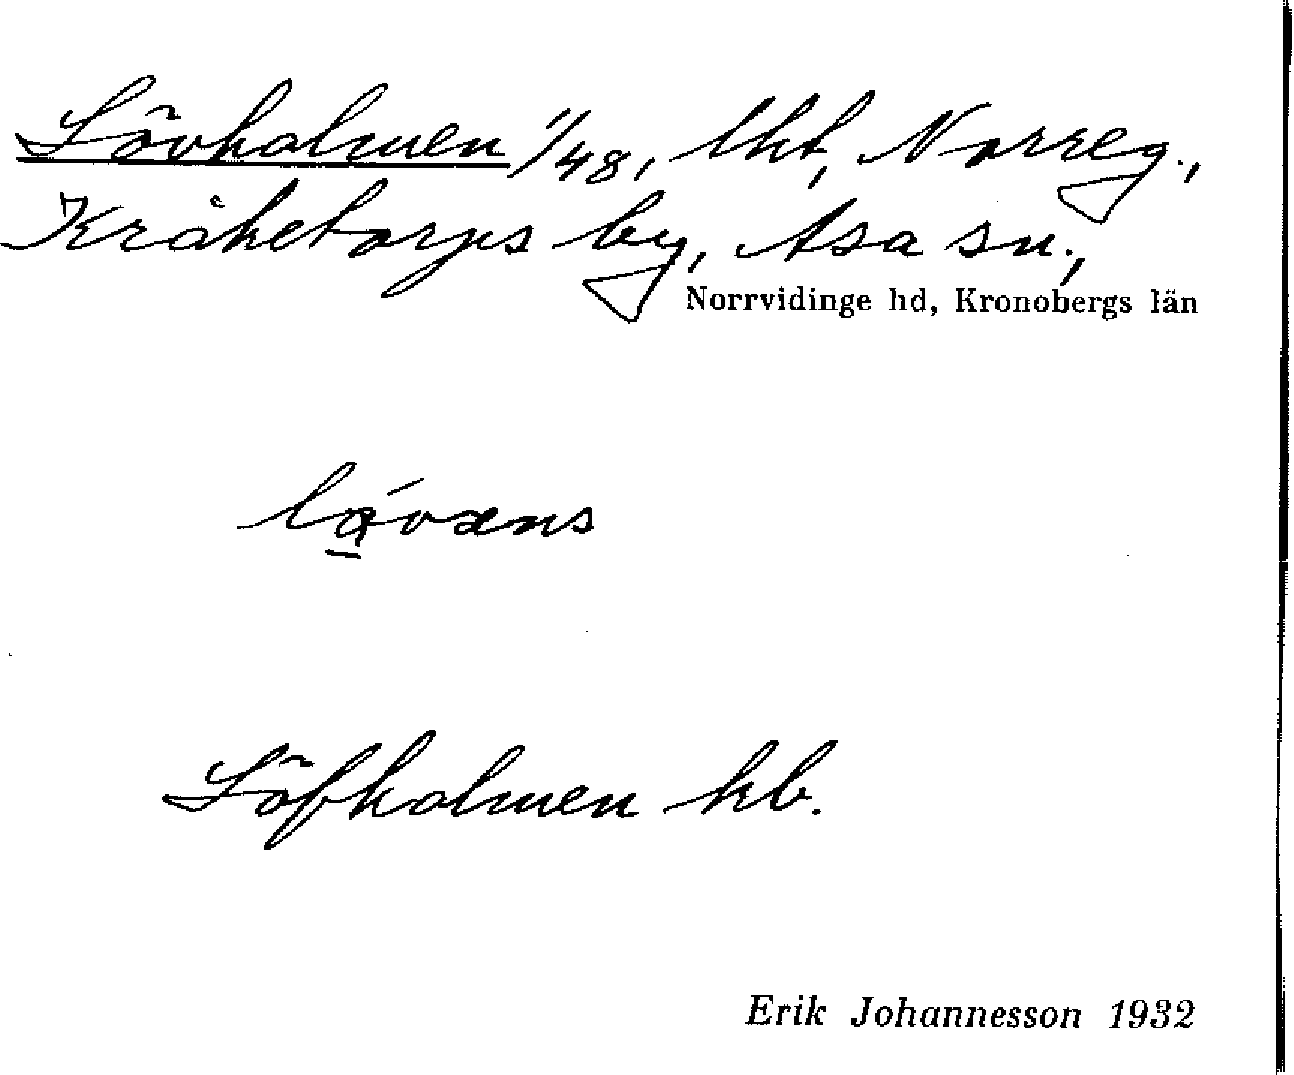 Lövholmen 1/48, lht, Norreg.,
Kråketorps by, Asa sn.,
Norrvidinge hd, Kronobergs län
Löfholmen kb.
Erik Johannesson 1932